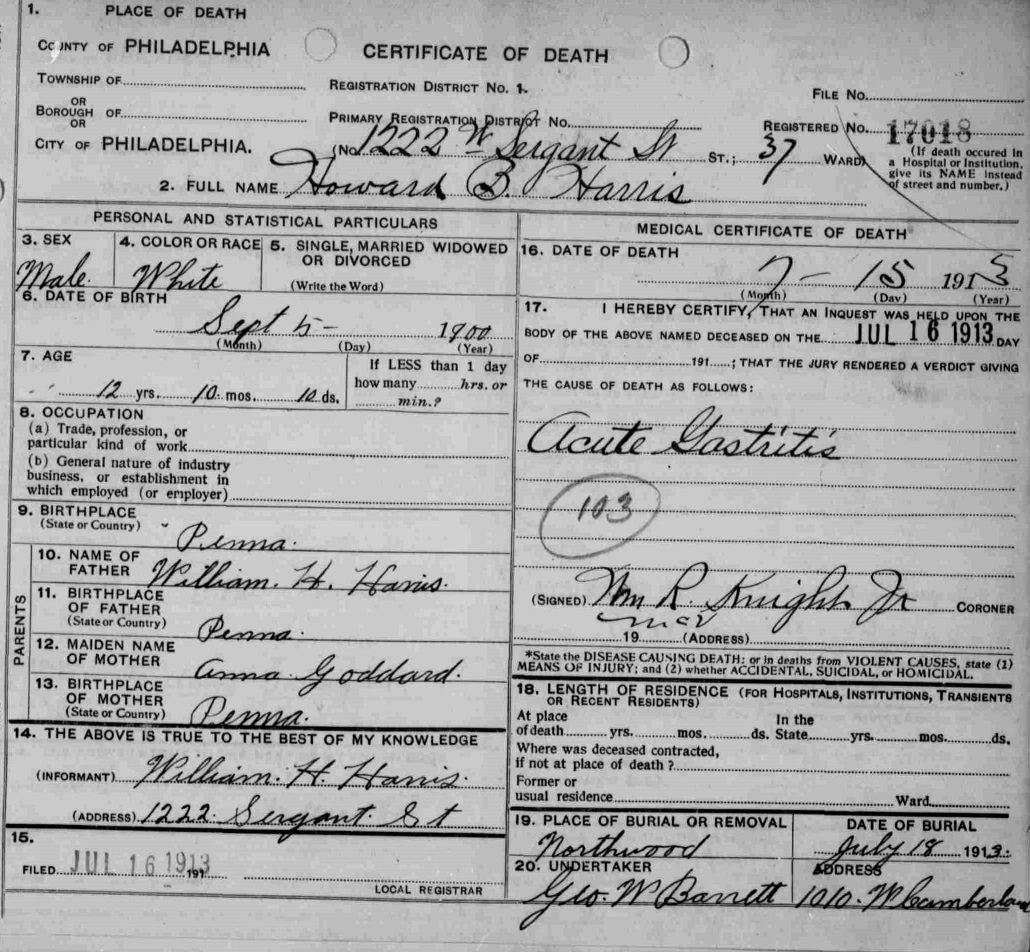 1. PLACE OF DEATH
COUNTY OF PHILADELPHIA
CERTIFICATE OF DEATH
TOWNSHIP OF
REGISTRATION DISTRICT NO. 1.
FILE NO.
OR
BOROUGH OF
OR
PRIMARY REGISTRATION DISTRICT NO.
REGISTERED NO. 17018
CITY OF PHILADELPHIA.
(NO. 1222 W Sergant St ST.; 37 WARD)
(If death occured in
a Hospital or Institution,
give its NAME instead
of street and number.)
2. FULL NAME Howard B. Harris
PERSONAL AND STATISTICAL PARTICULARS
3. SEX
Male.
4. COLOR OR RACE
White
5. SINGLE, MARRIED WIDOWED
OR DIVORCED
(Write the Word)
6. DATE OF BIRTH
Sept 5- 1900
(Month) (Day) (Year)
7. AGE
12 yrs. 10 mos. 10 ds.
If LESS than 1 day
how many hrs. or
min.?
8. OCCUPATION
(a) Trade, profession, or
particular kind of work
(b) General nature of industry
business, or establishment in
which employed (or employer)
9. BIRTHPLACE
(State or Country)
Penna.
PARENTS
10. NAME OF
FATHER William. H. Harris.
11. BIRTHPLACE
OF FATHER
(State or Country)
Penna.
12. MAIDEN NAME
OF MOTHER
Anna Goddard.
13. BIRTHPLACE
OF MOTHER
(State or Country) Penna.
14. THE ABOVE IS TRUE TO THE BEST OF MY KNOWLEDGE
(INFORMANT) William. H. Harris.
(ADDRESS) 1222 Sergant St
15.
FILED JUL 16 1913 191
LOCAL REGISTRAR
MEDICAL CERTIFICATE OF DEATH
16. DATE OF DEATH
7 - 15 1913
(Month) (Day) (Year)
17. I HEREBY CERTIFY, THAT AN INQUEST WAS HELD UPON THE
BODY OF THE ABOVE NAMED DECEASED ON THE JUL 16 1913 DAY
OF 191 ; THAT THE JURY RENDERED A VERDICT GIVING
THE CAUSE OF DEATH AS FOLLOWS:
Acute Gastritis
103
(SIGNED) Wm R Knight Jr CORONER
19 (ADDRESS)
*State the DISEASE CAUSING DEATH: or in deaths from VIOLENT CAUSES, state (1)
MEANS OF INJURY; and (2) whether ACCIDENTAL, SUICIDAL, or HOMICIDAL.
18. LENGTH OF RESIDENCE (FOR HOSPITALS, INSTITUTIONS, TRANSIENTS
OR RECENT RESIDENTS)
At place
of death yrs. mos. ds.
In the
State yrs. mos. ds.
Where was deceased contracted,
if not at place of death ?
Former or
usual residence Ward
19. PLACE OF BURIAL OR REMOVAL
Northwood
DATE OF BURIAL
July 18 1913.
20. UNDERTAKER
Geo. W Barrett
ADDRESS
1010. W Cumberland